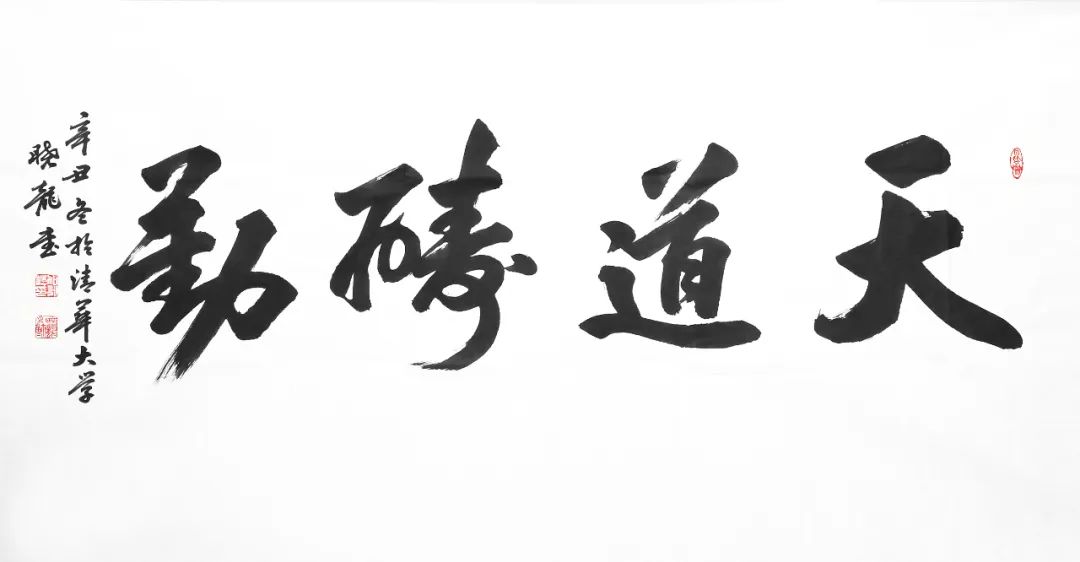 天道酬勤
辛丑冬於清華大学
晓龍书